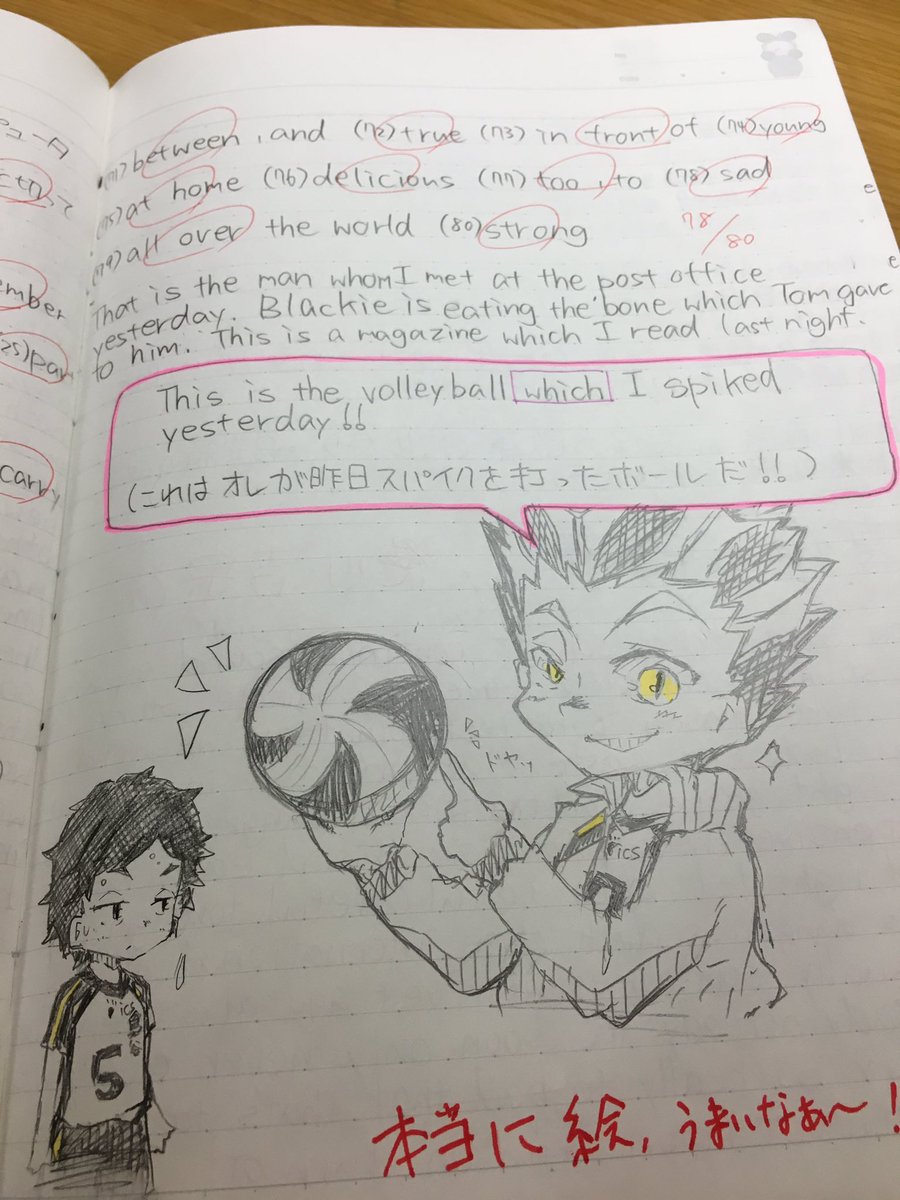 ピュータ
(71) between, and (72) true (73) in front of (74) young
(75) at home (76) delicious (77) too, to (78) sad
(79) all over the world (80) strong
78/80
That is the man whom I met at the post office
yesterday. Blackie is eating the bone which Tom gave
to him. This is a magazine which I read last night.
This is the volleyball which I spiked
yesterday!!
(これは オレが昨日スパイクを打ったボールだ!!)
ドヤッ
ICS
ICS
5
本当に絵,うまいなぁ〜!
mber
(25) par
carry